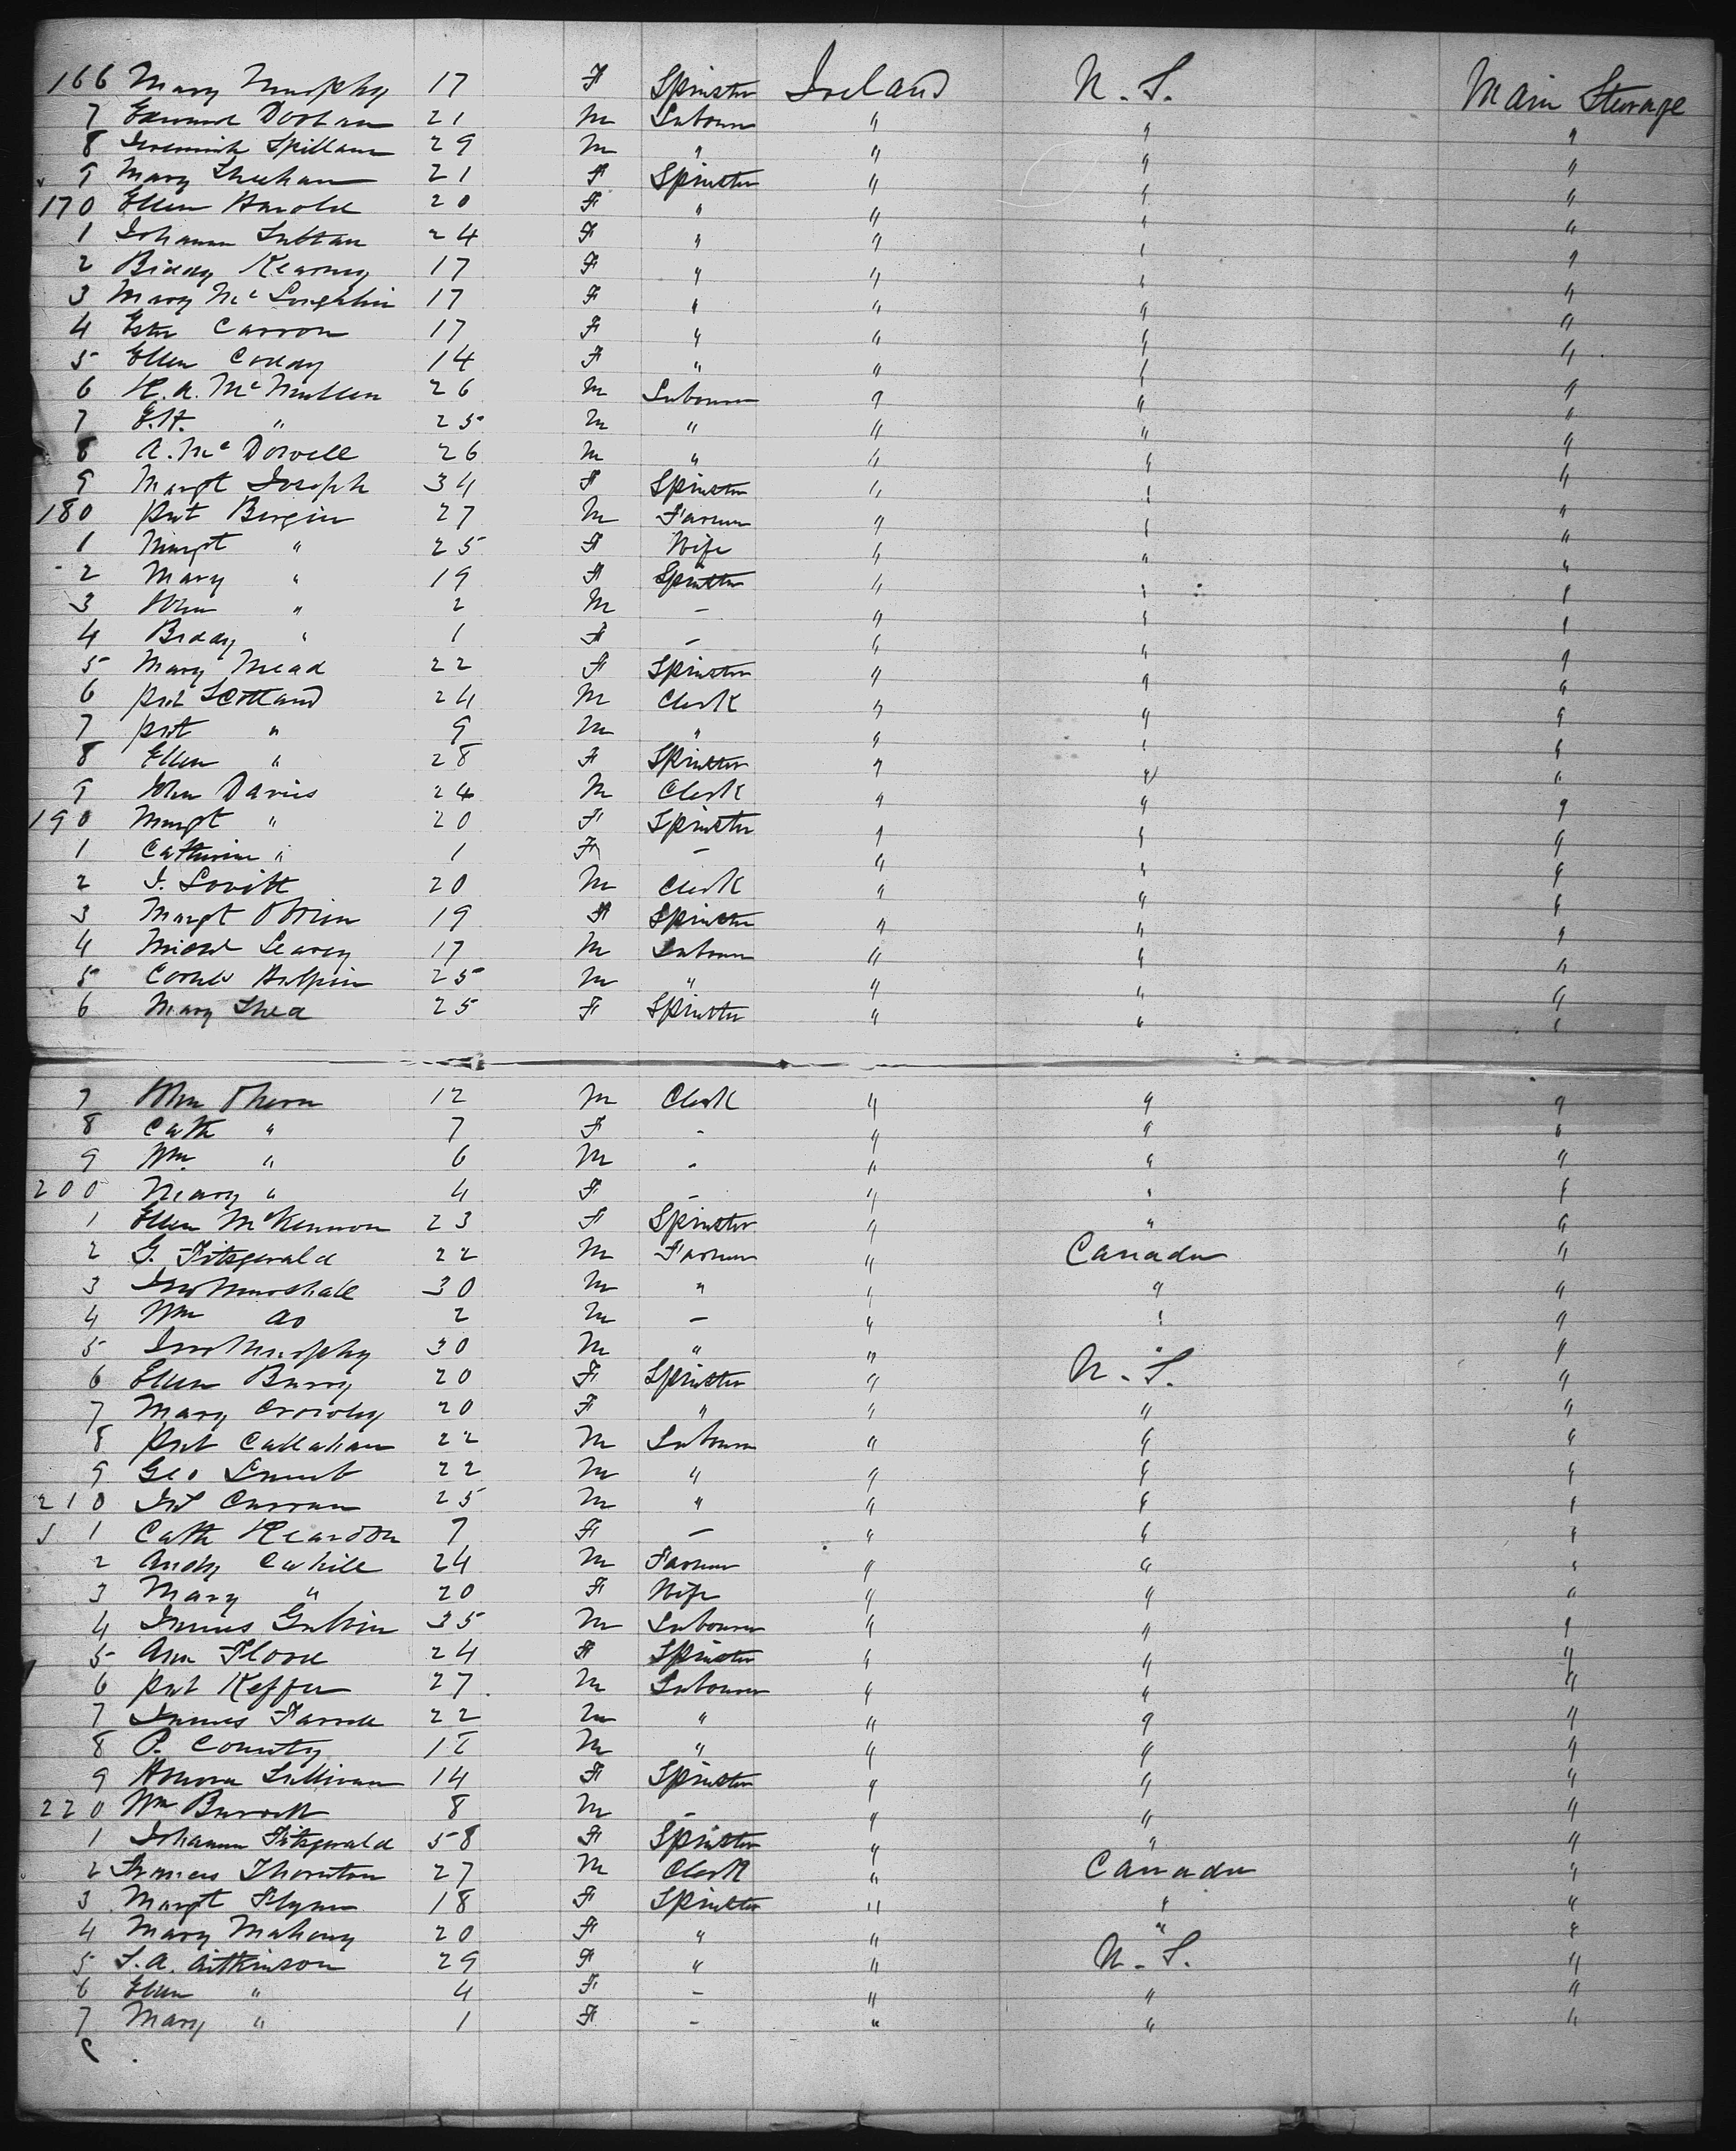 166 Mary Murphy 17 F Spinster Ireland U. S. Main Sterage
7 Edward Doolan 21 M Labourer " " "
8 Jeremiah Spillane 29 M " " " "
9 Mary Sheehan 21 F Spinster " " "
170 Ellen Harold 20 F " " " "
1 Johanna 24 F " " " "
2 Biddy Kearney 17 F " " " "
3 Mary McLoughlin 17 F " " " "
4 Ester Carron 17 F " " " "
5 Ellen Coddy 14 F " " " "
6 H. A. McMullen 26 M Labourer " " "
7 E. H. " 25 M " " " "
8 A. McDowell 26 M " " " "
9 Margt Joseph 34 F Spinster " " "
180 Pat Bergin 27 M Farmer " " "
1 Margt " 25 F Wife " " "
2 Mary " 19 F Spinster " " "
3 John " 2 M - " " "
4 Biddy " 1 F - " " "
5 Mary Mead 22 F Spinster " " "
6 Pat Scotland 24 M Clerk " " "
7 Pat " 9 M " " " "
8 Ellen " 28 F Spinster " " "
9 John Davies 24 M Clerk " " "
190 Margt " 20 F Spinster " " "
1 Catherine " 1 F - " " "
2 J. Lovitt 20 M Clerk " " "
3 Margt OBrien 19 F Spinster " " "
4 Michl Learey 17 M Labourer " " "
5 Cornls Halpin 25 M " " " "
6 Mary Shea 25 F Spinster " " "
7 John 12 M Clerk " " "
8 Cath " 7 F - " " "
9 Wm " 6 M - " " "
200 Mary " 4 F - " " "
1 Ellen McKennon 23 F Spinster " " "
2 G. Fitzgerald 22 M Farmer " Canada "
3 Jno Marshall 30 M " " " "
4 Wm do 2 M - " " "
5 Jno Murphy 30 M " " " "
6 Ellen Barry 20 F Spinster " U. S. "
7 Mary Crowley 20 F " " " "
8 Pat Callahan 22 M Labourer " " "
9 Geo Lamb 22 M " " " "
210 Curran 25 M " " " "
1 Cath Reardon 7 F - " " "
2 Andy Cahill 24 M Farmer " " "
3 Mary " 20 F Wife " " "
4 James Galvin 35 M Labourer " " "
5 Ann Flood 24 F Spinster " " "
6 Pat Keffer 27 M Labourer " " "
7 James Farrell 22 M " " " "
8 P. M " " " "
9 Honora Sullivan 14 F Spinster " " "
220 Wm Barrett 8 M - " " "
1 Johanna Fitzgerald 58 F Spinster " " "
2 Francis Thornton 27 M Clerk " Canada "
3 Margt Flynn 18 F Spinster " " "
4 Mary Mahony 20 F " " " "
5 S. A. Aitkinson 29 F " " U. S. "
6 Ellen " 4 F - " " "
7 Mary " 1 F - " " "